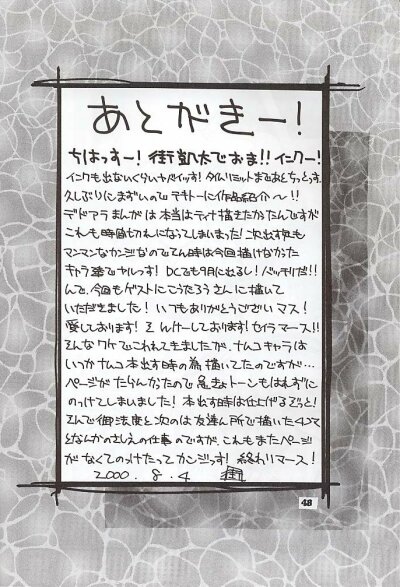 あとがきー!
ちはっすー! 街凱太でおま!! インクー!
インクも出ないくらいヤバイッす! タイムリミットまであとちっとっす。
久しぶりにまずいのでテキトーに作品紹介〜!!
デドアラまんがは本当はティナ描きたかったんですが
これも時間切れになってしまいまった! 次出す時も
マンマンなカンジなのでそん時は今回描けなかった
キャラ達でヤルっす! DCでも9月に出るし! バッチリだ!!
んで、今回もゲストにこうたろうさんに描いて
いただきました! いつもありがとうございマス!
愛しております! そんけーしております! セイラマース!!
そんなワケでこわれてきましたが、ナムコキャラは
いつかナムコ本出す時の為描いてたのですが…
ページがたらんかったので急きょトーンもはれずに
のっけてしまいました! 本出す時は仕上げるぞっと!
そんで御法度と次のは友達ん所で描いた4コマ
となんかのさしえの仕事のですが、これもまたページ
がなくてのっけたってカンジっす! 終わりマース!
2000.8.4 街
48